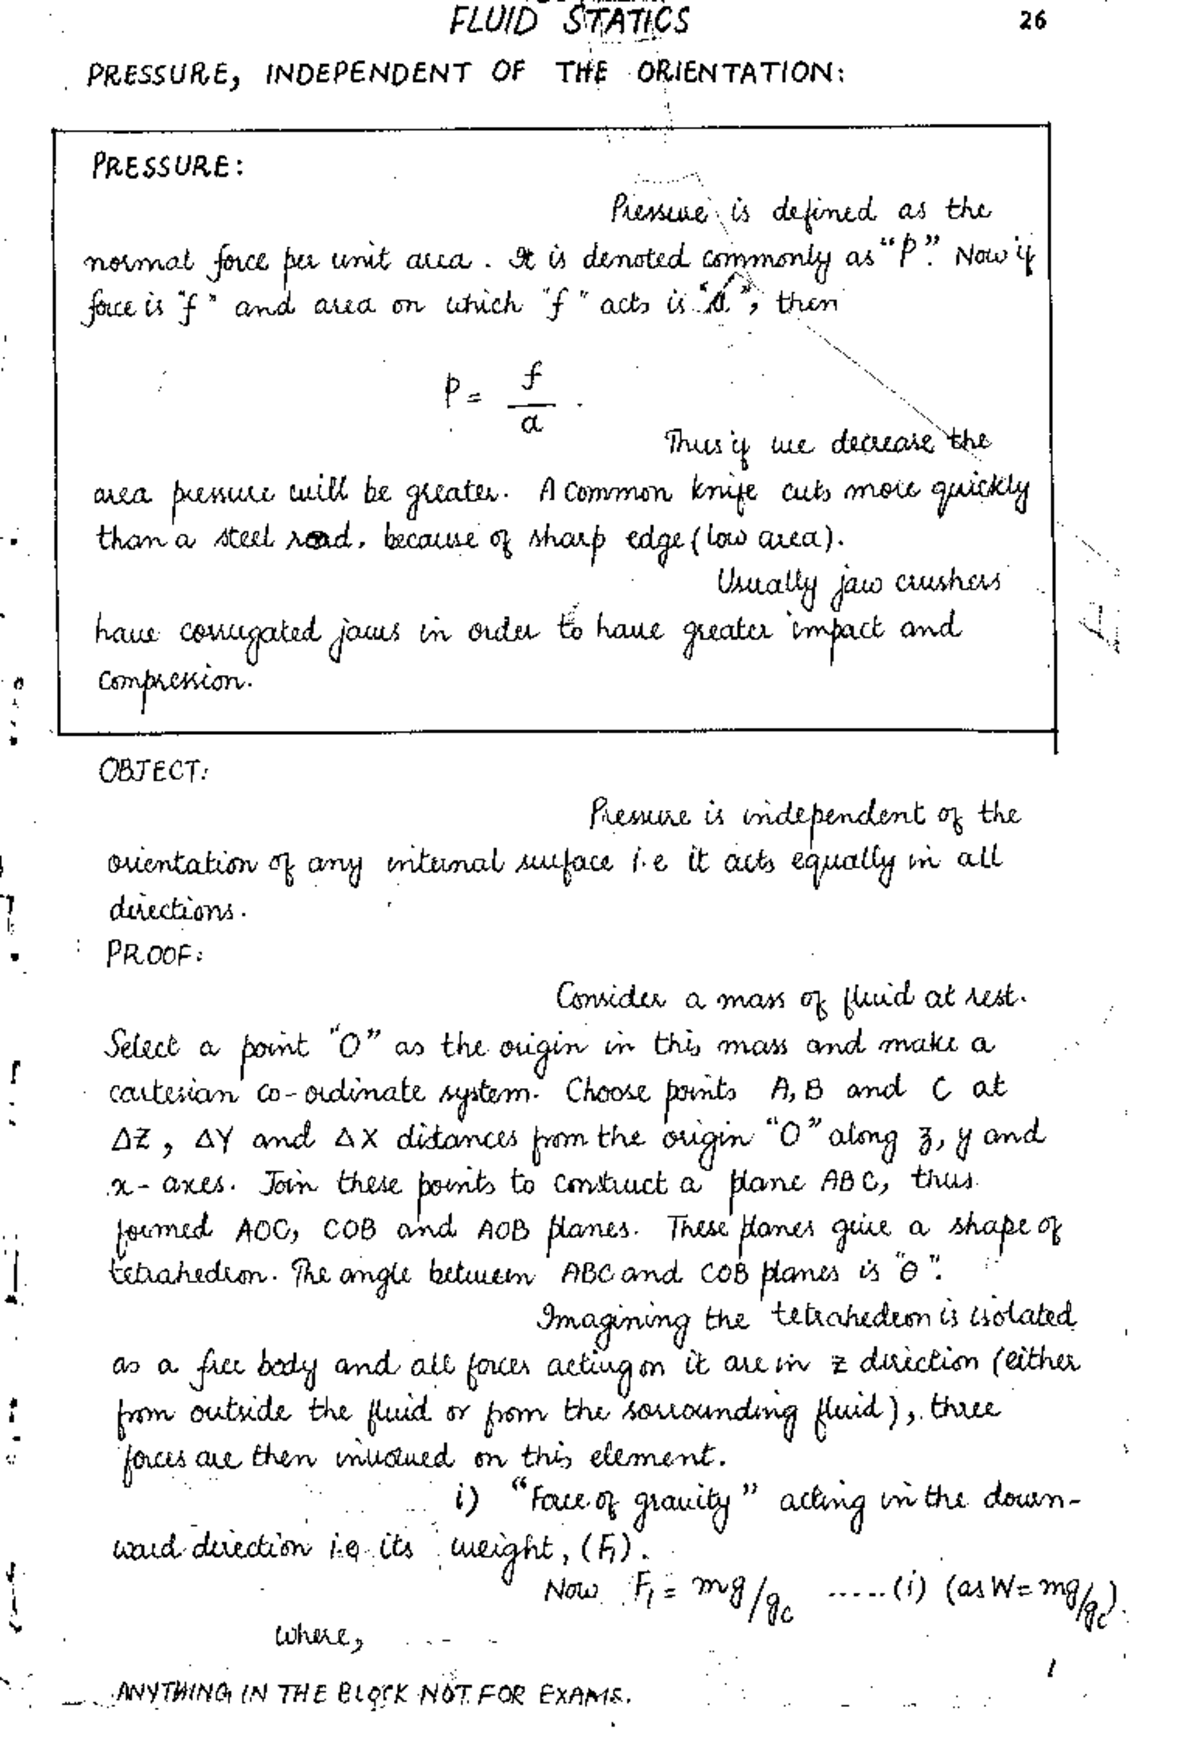 FLUID STATICS 26
PRESSURE, INDEPENDENT OF THE ORIENTATION:
PRESSURE:
Pressure is defined as the
normal force per unit area. It is denoted commonly as "P". Now if
force is "f" and area on which "f" acts is "a", then
P = f/a .
Thus if we decrease the
area pressure will be greater. A common knife cuts more quickly
than a steel road, because of sharp edge (low area).
Usually jaw crushers
have corrugated jaws in order to have greater impact and
compression.
OBJECT:
Pressure is independent of the
orientation of any internal surface i.e it acts equally in all
directions.
PROOF:
Consider a mass of fluid at rest.
Select a point "O" as the origin in this mass and make a
cartesian co-ordinate system. Choose points A, B and C at
ΔZ, ΔY and ΔX distances from the origin "O" along z, y and
x-axes. Join these points to construct a plane ABC, thus
formed AOC, COB and AOB planes. These planes give a shape of
tetrahedron. The angle between ABC and COB planes is "θ".
Imagining the tetrahedron is isolated
as a free body and all forces acting on it are in z direction (either
from outside the fluid or from the sorrounding fluid), three
forces are then involved on this element.
i) "Force of gravity" acting in the down-
ward direction i.e its weight, (F₁).
Now F₁ = mg/gc .....(i) (as W = mg/gc).
where,
ANYTHING IN THE BLOCK NOT FOR EXAMS.